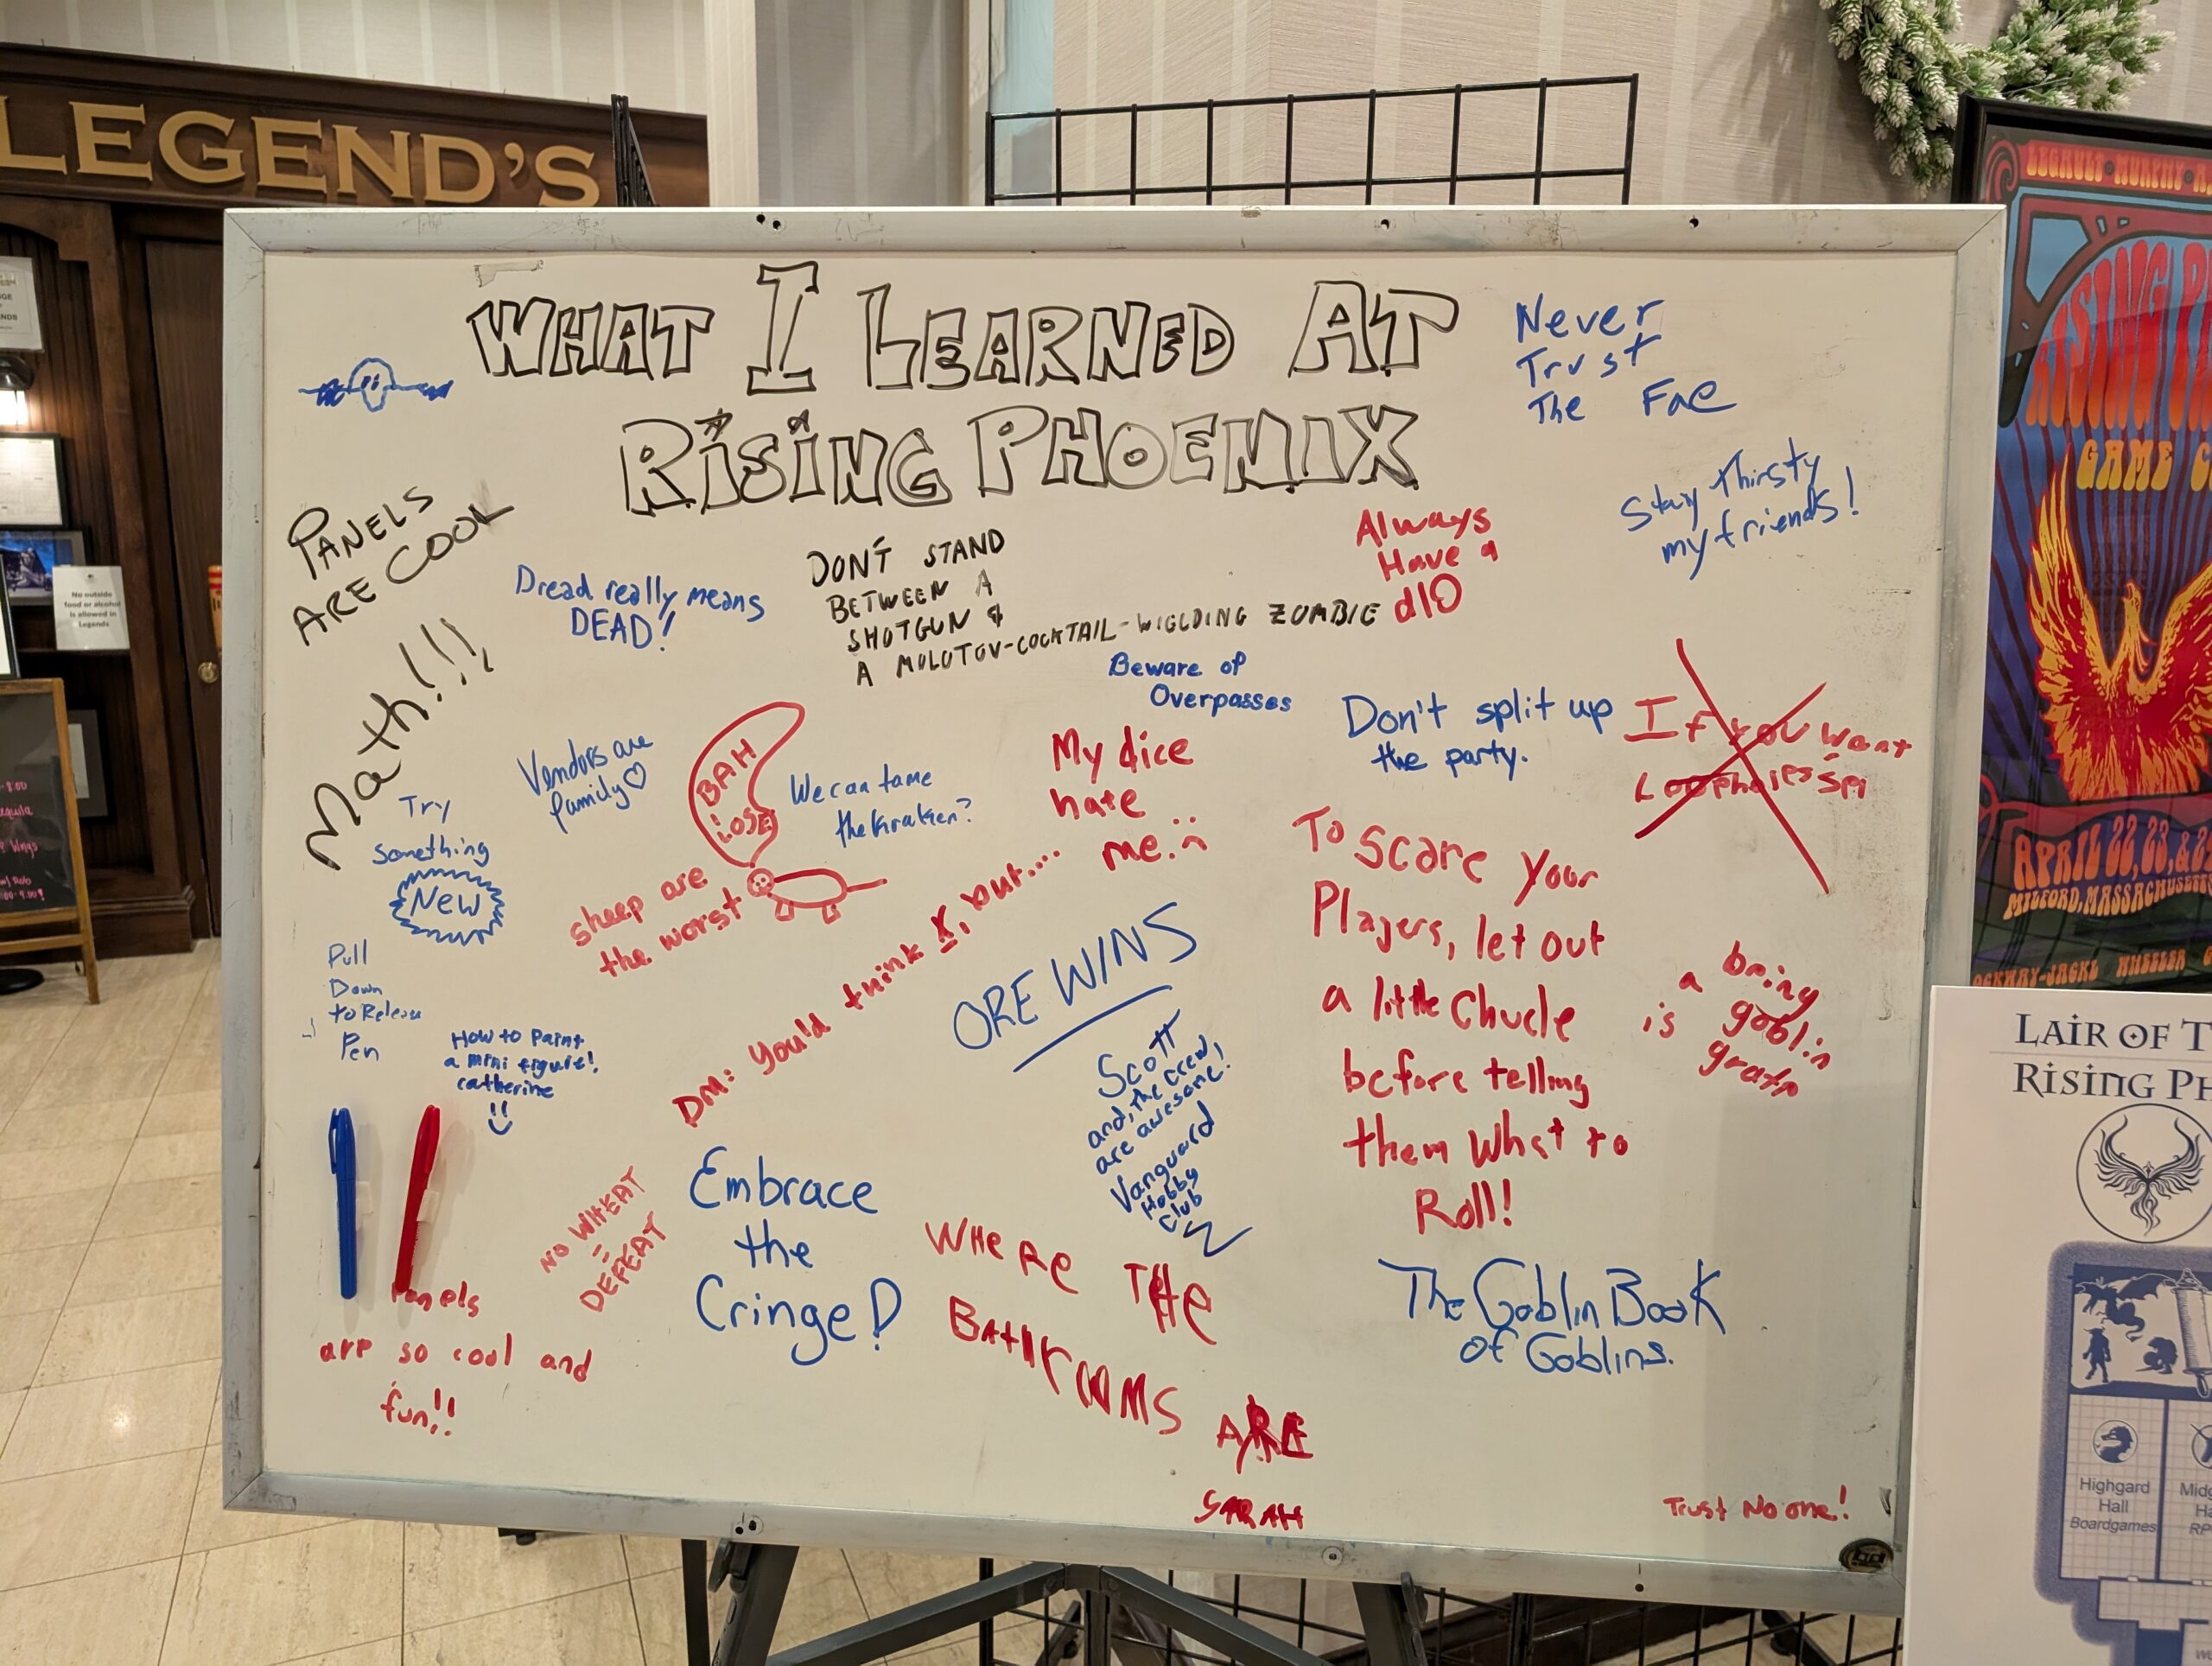 LEGEND'S
No outside
food or alcohol
is allowed in
Legends
WHAT I LEARNED AT
RISING PHOENIX
Never
Trust
The Fae
Stay Thirsty
my friends!
PANELS
ARE COOL
Dread really means
DEAD!
DON'T STAND
BETWEEN A
SHOTGUN &
A MOLOTOV-COCKTAIL-WIELDING ZOMBIE
Always
Have a
d10
Math!!!
Beware of
Overpasses
Don't split up
the party.
If you want
Loopholes
Vendors are
family
BAH
LOSER
We can tame
the kraken?
My dice
hate
me.
Try
Something
New
sheep are
the worst
To Scare your
Players, let out
a little Chucle
before telling
them what to
Roll!
DM: You'd think X, but....
ORE WINS
Pull
Down
to Release
Pen
How to Paint
a mini figure!
Catherine
Scott
and, the crew,
are awesome!
Vanguard
Hobby
Club
bring
a goblin
is
NO WHEAT
=
DEFEAT
Embrace
the
Cringe!
Panels
are so cool and
fun!!
WHeRe THe
BATHrOOMS
ARE
SARAH
The Goblin Book
of Goblins.
Trust No one!
LEGAULT MURPHY
RISING
GAME
APRIL 22, 23, &
MILFORD, MASSACHUSETTS
WHEELER
LAIR OF
RISING
Highgard
Hall
Boardgames